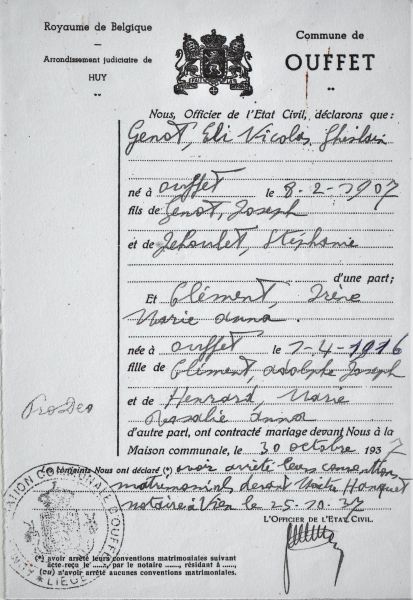 Royaume de Belgique
Arrondissement judiciaire de
HUY
Commune de
OUFFET
Nous, Officier de l'Etat Civil, déclarons que:
Genot, Eli Nicolas Ghislain
né à Ouffet le 8-2-1907
fils de Genot, Joseph
et de Jehoulet, Stéphanie
d'une part;
Et Clément, Irène
Marie Anna.
née à Ouffet le 1-4-1916
fille de Clément, Adolphe Joseph
et de Henrard, Marie
Rosalie Anna
d'autre part, ont contracté mariage devant Nous à la
Maison communale, le 30 octobre 1937
ProDeo
Les conjoints Nous ont déclaré (*) avoir arrêté leurs conventions
matrimoniales devant Maître
notaire à le 25-10-37
L'OFFICIER DE L'ETAT CIVIL.
(*) avoir arrêté leurs conventions matrimoniales suivant
acte reçu le ......, par le notaire ......, résidant à ......,
(ou) n'avoir arrêté aucunes conventions matrimoniales.
ADMINISTRATION COMMUNALE D'OUFFET
LIEGE